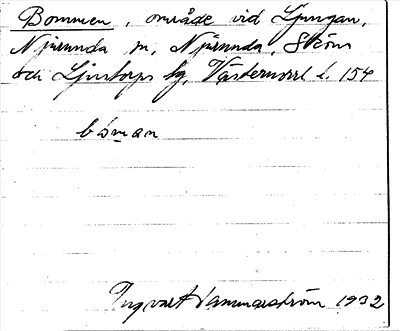 Bommen, område vid Ljungan,
Njurunda sn, Njurunda, Sköns
och Ljustorps tg, Västernorrl l. 154
bòman
Ingvart Hammarström 1932